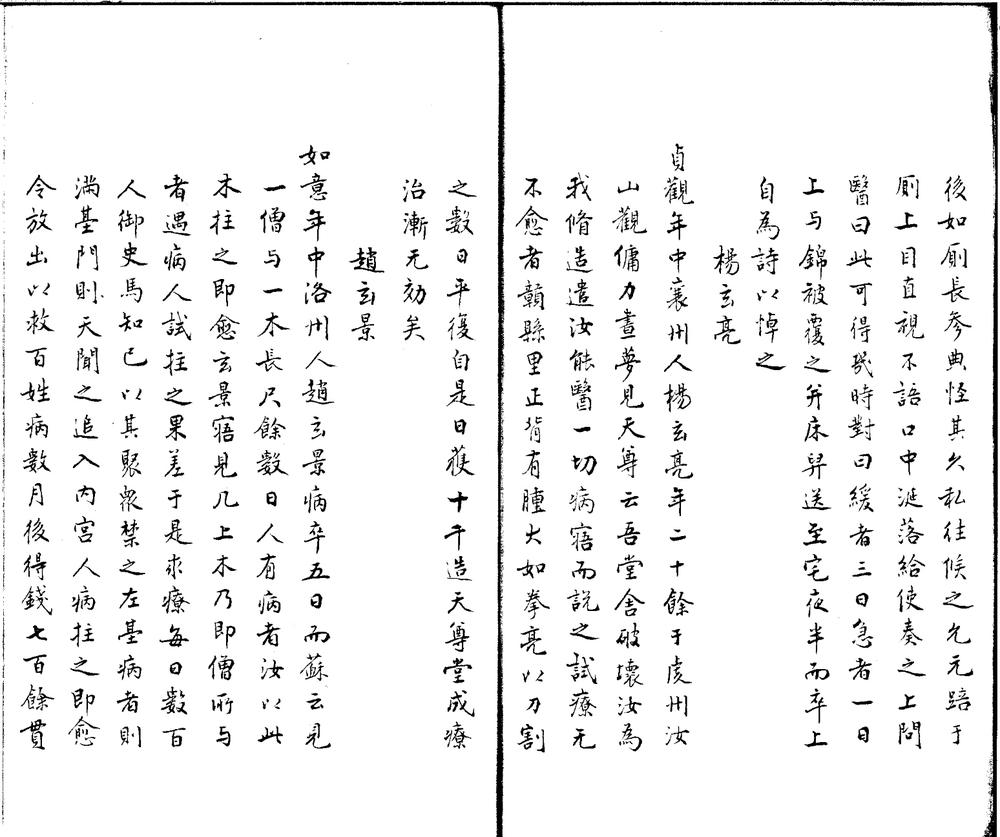 後如厠長參典怪其久私往候之允元踣于
厠上目直視不語口中涎落給使奏之上問
醫曰此可得幾時對曰緩者三日急者一日
上与錦被覆之并床舁送至宅夜半而卒上
自為詩以悼之
楊玄亮
貞觀年中襄州人楊玄亮年二十餘于虔州汝
山觀傭力晝夢見天尊云吾堂舍破壞汝為
我脩造遣汝能醫一切病寤而說之試療无
不愈者贛縣里正背有腫大如拳亮以刀割
之數日平復自是日獲十千造天尊堂成療
治漸无効矣
趙玄景
如意年中洛州人趙玄景病卒五日而蘇云見
一僧与一木長尺餘數日人有病者汝以此
木拄之即愈玄景寤見几上木乃即僧所与
者遇病人試拄之果差于是求療每日數百
人御史馬知已以其聚衆禁之左臺病者則
滿基門則天聞之追入內宮人病拄之即愈
令放出以救百姓病數月後得錢七百餘貫